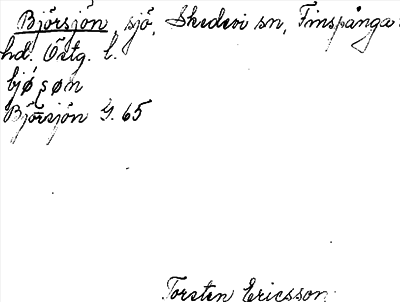 Björsjön, sjö, Skedevi sn, Finspånga
hd. Östg. l.
bjø̄ʂøn
Björsjön G. 65
Torsten Ericsson